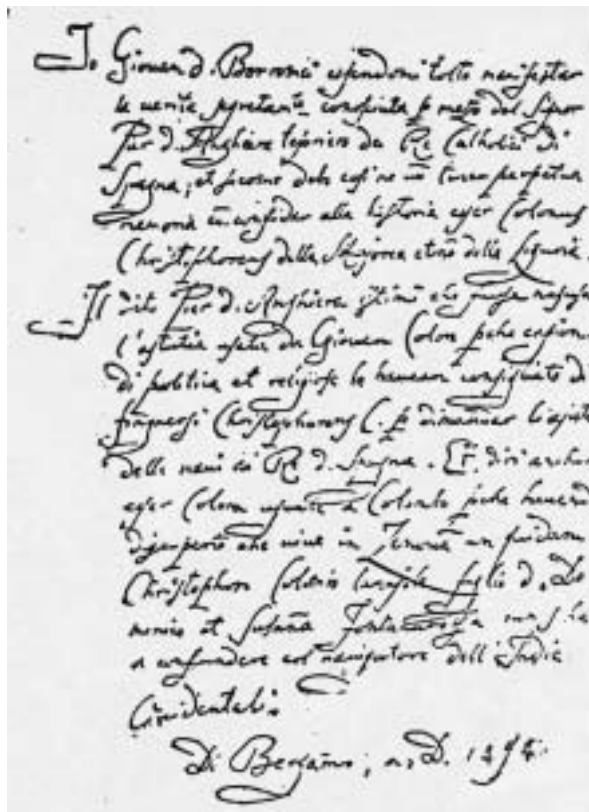 Io Giovan d. Borromei essendomi tolto manifestar
la verita segretamte conosciuta p mezo del Signor
Pier d. Anghiera tesoriero dei Re Catholici di
Spagna; et siccome debo perpetua
memoria confider alla historia esser Colonus
Christophorens della Majorca et nō della Liguria.
Il dito Pier d. Anghiera stimò che
l'astutia usata da Giovan Colon pche cagioni
di politica et religiose lo haveano consigliato di
fingersi Christophorens C. p dimandar li ajuti
delle navi ai Re d. Spagna. Et diro anchora
esser Colom a Colonbo pche havendo
discuperto che vive in Jenova un quidam
Christophoro Colonbo Canajole figlio d. Do
menico et Susana Fontanarossa non s ha
a confundere col navigatore dell'India
Occidentali.
Di Bergamo, a. D. 1494.